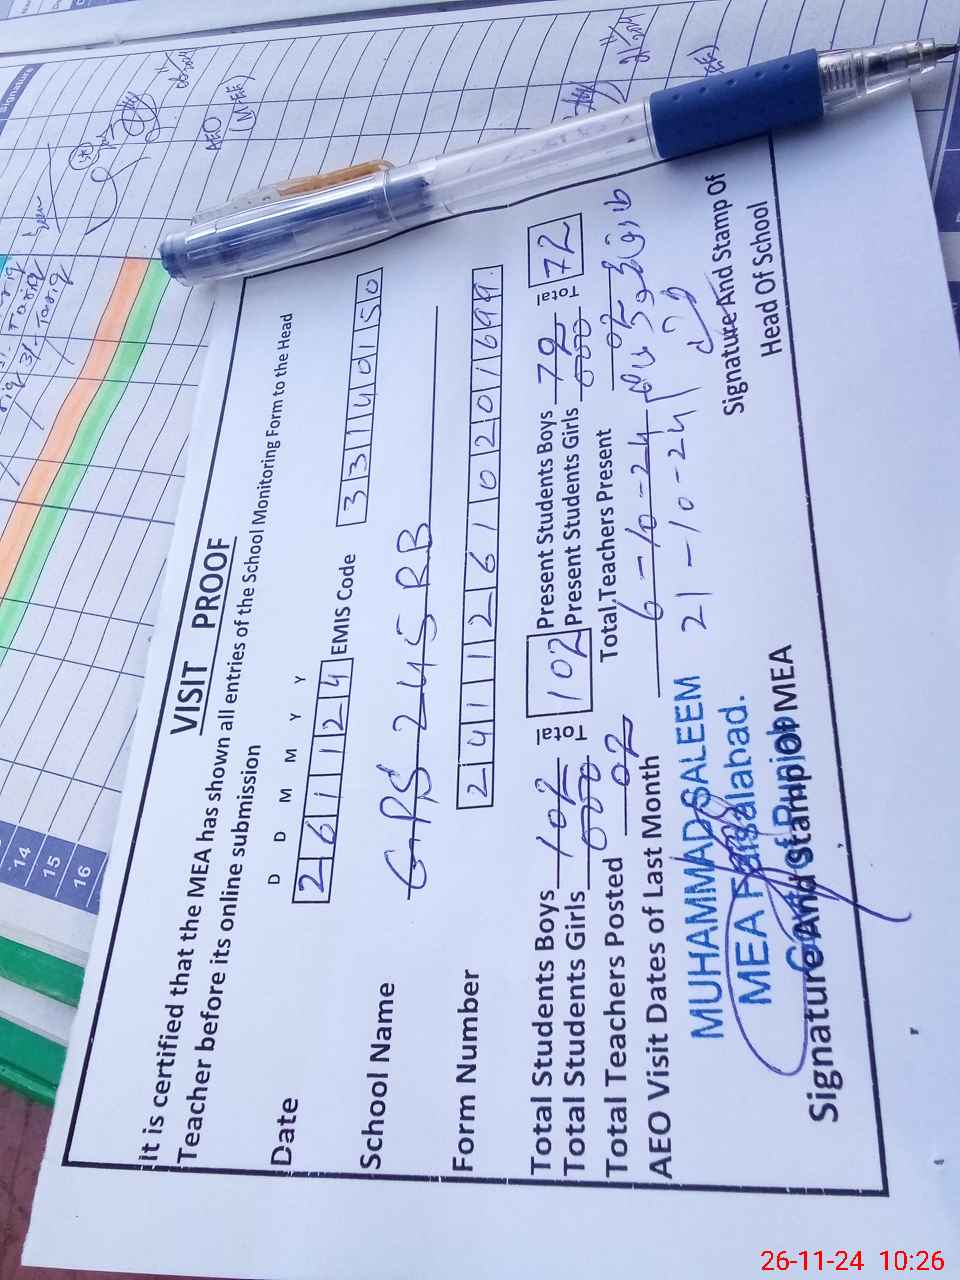 VISIT PROOF
It is certified that the MEA has shown all entries of the School Monitoring Form to the Head
Teacher before its online submission
D D M M Y Y
Date 261124 EMIS Code 33140150
School Name GPS 245 RB
Form Number 24112610201699
Total Students Boys 102 Total 102 Present Students Boys 72 Total 72
Total Students Girls 000 Present Students Girls 000
Total Teachers Posted 02 Total.Teachers Present 02
AEO Visit Dates of Last Month 6-10-24
21-10-24
MUHAMMAD SALEEM
MEA Faisalabad.
of Punjab
Signature And Stamp of MEA
Signature And Stamp Of
Head Of School
Signature
AEO
(M-EE)
14
15
16
Tariq
Tariq
26-11-24 10:26